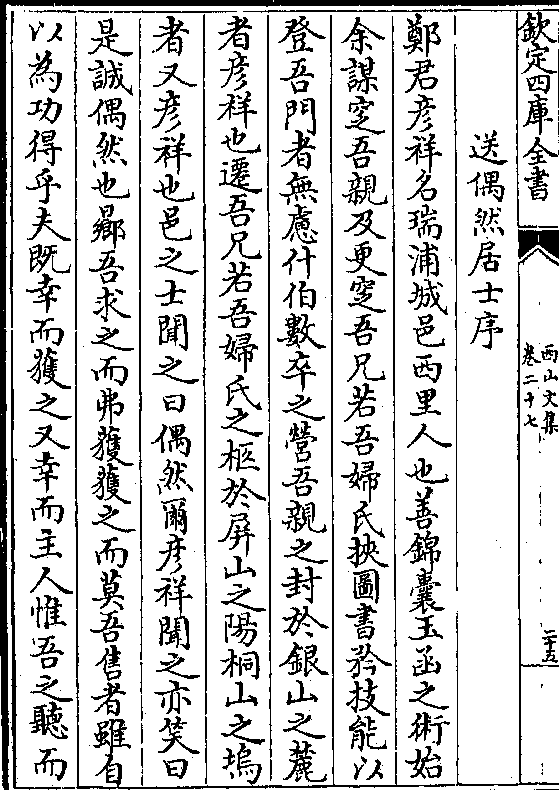 欽定四庫全書
西山文集
卷二十七
二十五
送偶然居士序
鄭君彦祥名瑞浦城邑西里人也善錦囊玉函之術始
余謀窆吾親及更窆吾兄若吾婦氏挾圖書矜技能以
登吾門者無慮什伯數卒之營吾親之封於銀山之麓
者彦祥也遷吾兄若吾婦氏之柩於屏山之陽桐山之塢
者又彦祥也邑之士聞之曰偶然爾彦祥聞之亦笑曰
是誠偶然也鄉吾求之而弗獲獲之而莫吾售者雖自
以為功得乎夫既幸而獲之又幸而主人惟吾之聽而